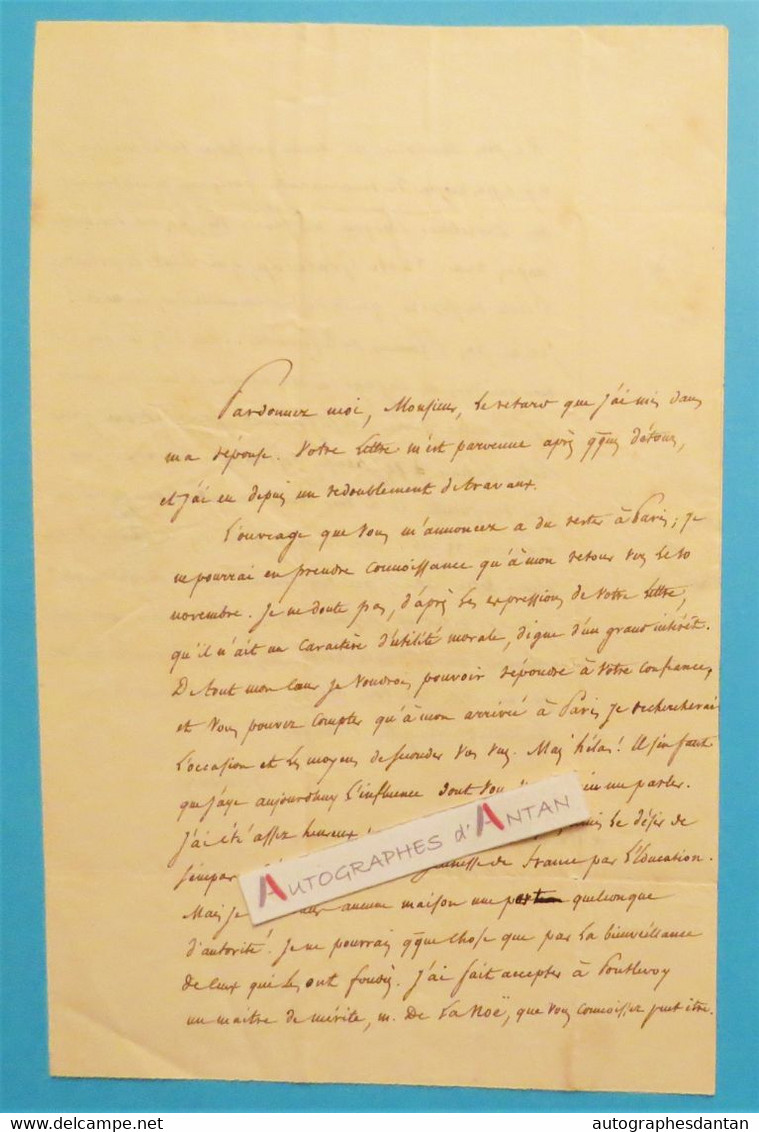 Pardonnez moi, Monsieur, le retard que j'ai mis dans
ma réponse. Votre lettre m'est parvenue après qques détours,
et j'ai eu depuis un redoublement de travaux.
L'ouvrage que vous m'annoncez a du rester à Paris; je
ne pourrai en prendre connoissance qu'à mon retour vers le 10
novembre. Je ne doute pas, d'après les expressions de votre lettre,
qu'il n'ait un caractère d'utilité morale, digne d'un grand intérêt.
De tout mon cœur je voudrois pouvoir répondre à votre confiance,
et vous pouvez compter qu'à mon arrivée à Paris je rechercherai
l'occasion et les moyens de seconder vos vues. Mais hélas! Il s'en faut
que j'aye aujourdhuy l'influence dont vous me parler.
J'ai été assez heureux le désir de
s'empar jeunesse de France par l'Education.
Mais je aucune maison une portion quelconque
d'autorité! Je ne pourrais qque chose que par la bienveillance
de ceux qui les ont fondés. J'ai fait accepter à Pontlevoy
un maitre de mérite, m. De La Noë, que vous connoissez peut être.
AUTOGRAPHES d'ANTAN
autographesdantan